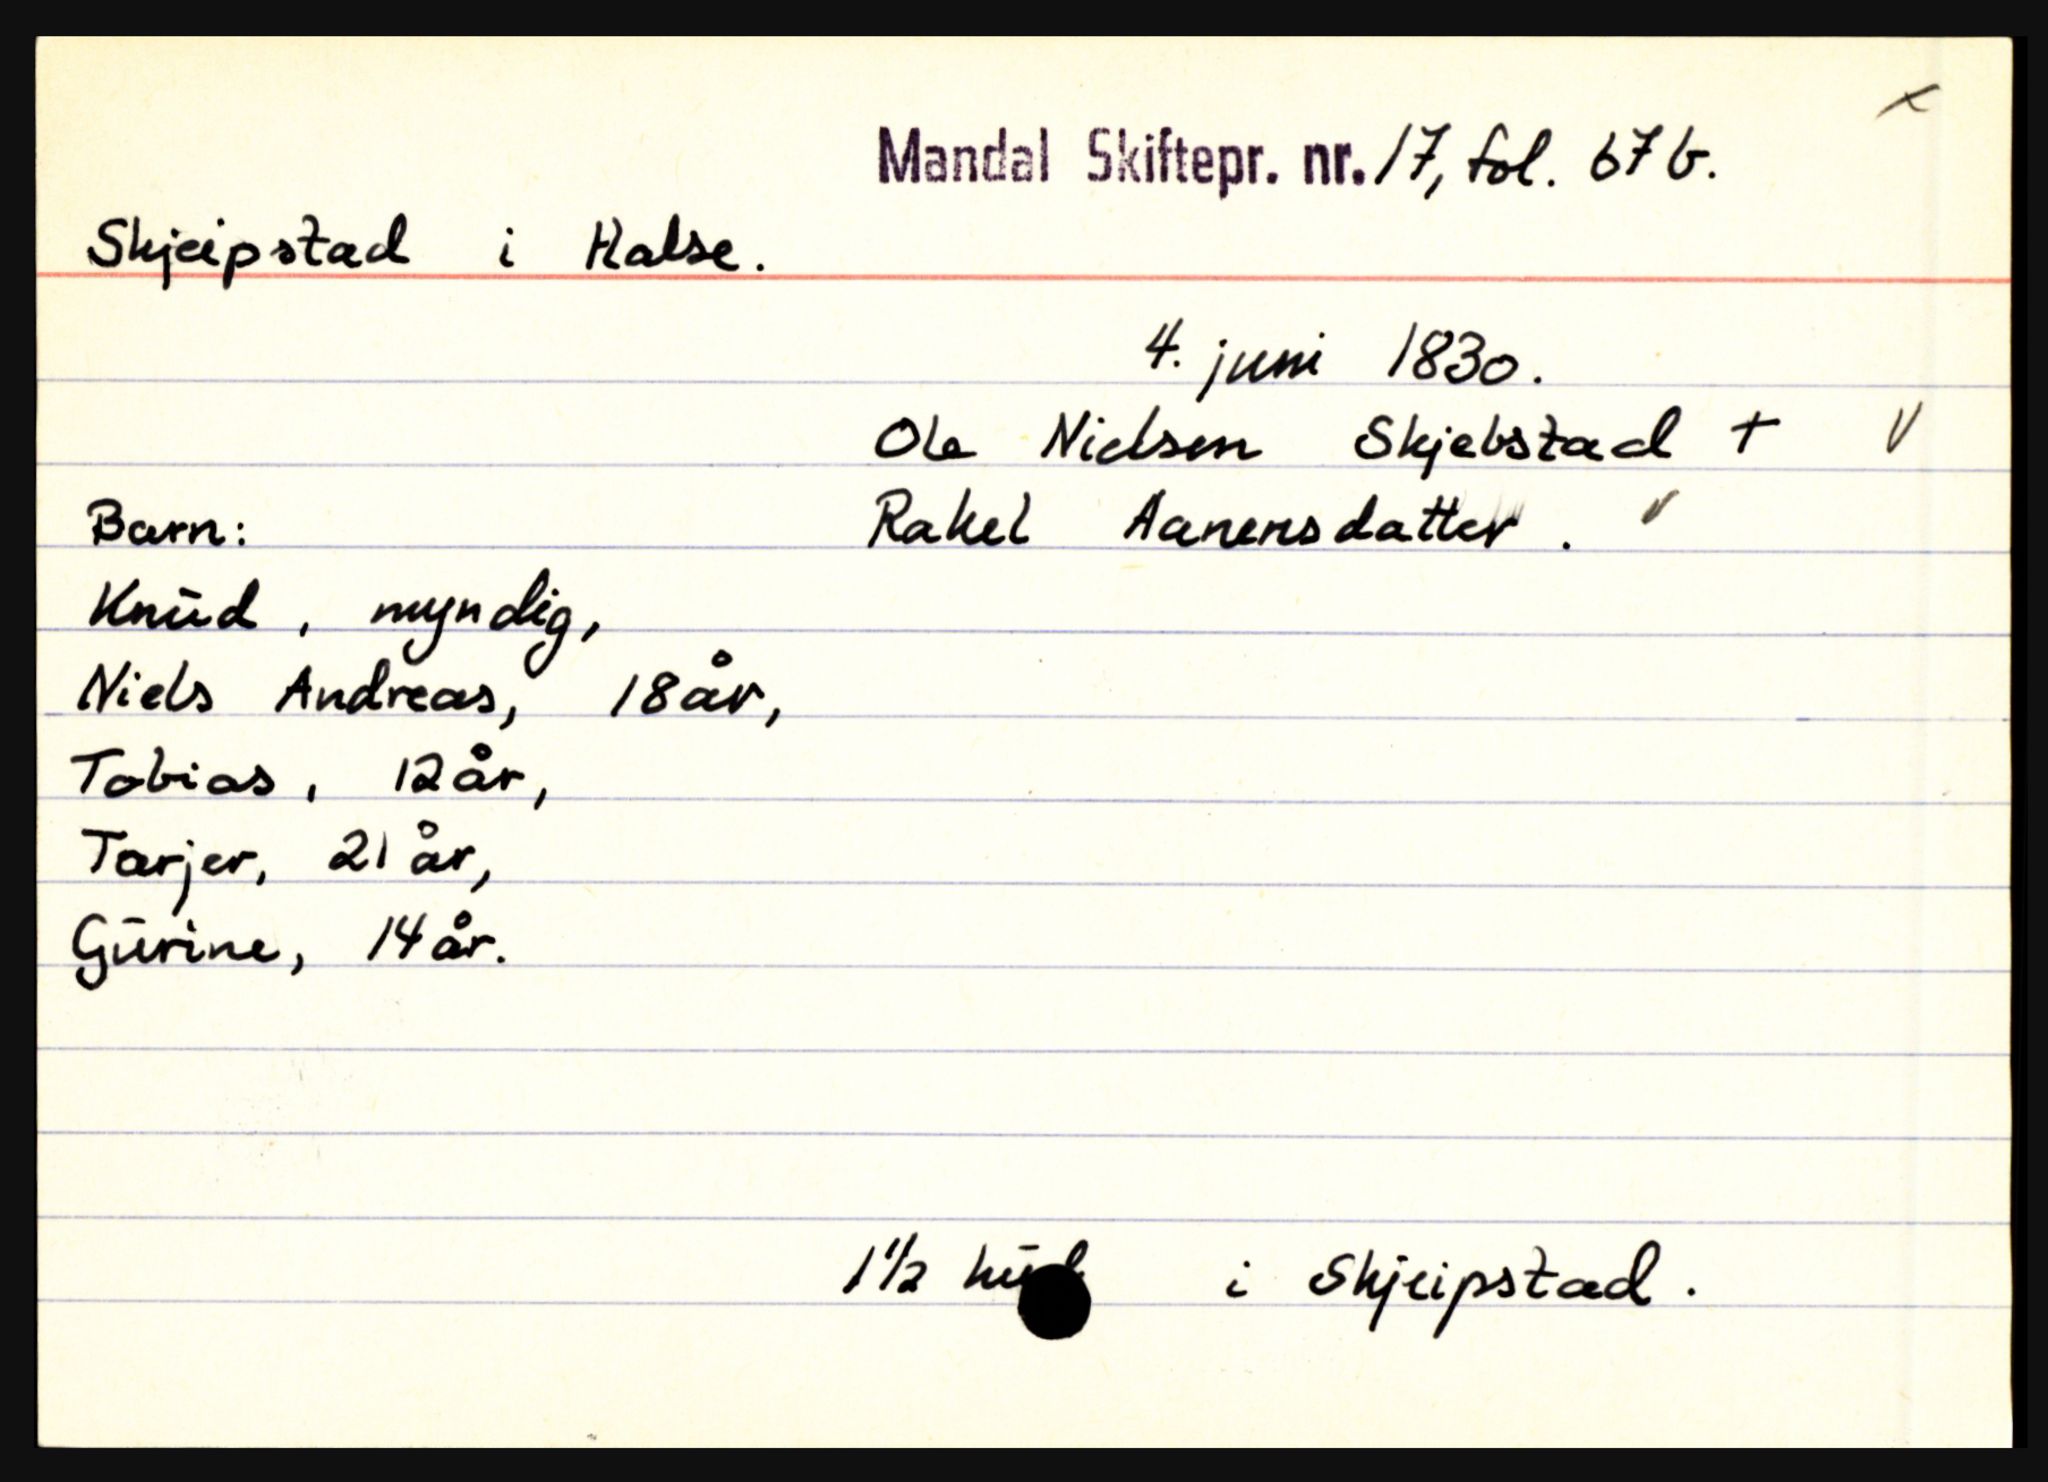 Mandal Skiftepr. nr. 17, fol. 67b.
Skjeipstad i Halse.
4. juni 1830.
Ole Nielsen Skjebstad +
Barn: Rakel Aanensdatter.
Knud, myndig,
Niels Andreas, 18 år,
Tobias, 12 år,
Tarjer, 21 år,
Gurine, 14 år.
1 1/2 hud i Skjeipstad.